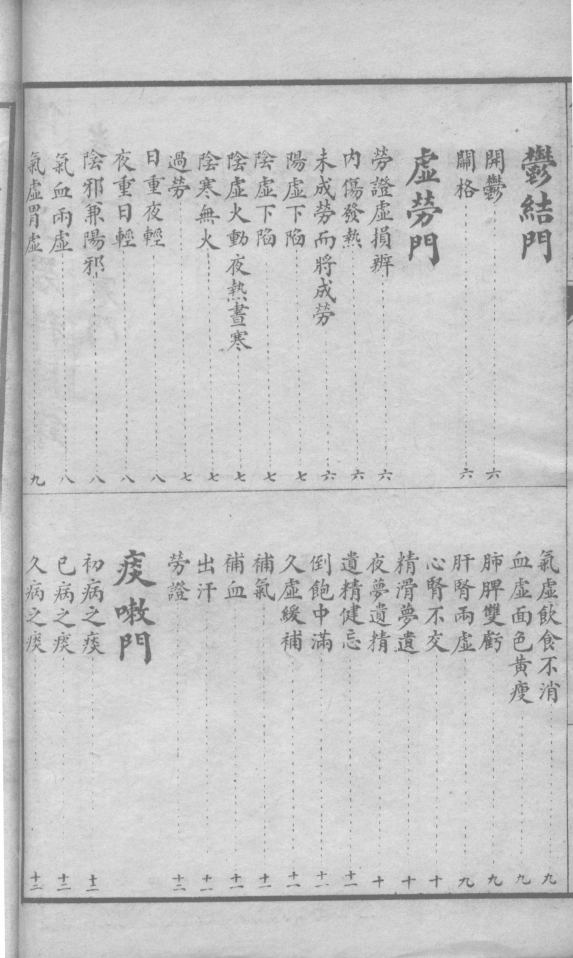 鬱結門
開鬱 六
關格 六
虛勞門
勞證虛損辨 六
內傷發熱 六
未成勞而將成勞 六
陽虛下陷 七
陰虛下陷 七
陰虛火動夜熱晝寒 七
陰寒無火 七
過勞 七
日重夜輕 八
夜重日輕 八
陰邪兼陽邪 八
氣血兩虛 八
氣虛胃虛 九
氣虛飲食不消 九
血虛面色黃瘦 九
肺脾雙虧 九
肝腎兩虛 九
心腎不交 十
精滑夢遺 十
夜夢遺精 十
遺精健忘 十一
倒飽中滿 十一
久虛緩補 十一
補氣 十一
補血 十一
出汗 十一
勞證 十二
痰嗽門
初病之痰 十二
已病之痰 十二
久病之痰 十二